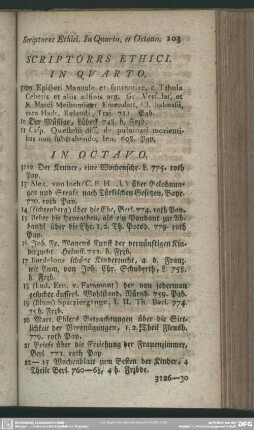 Scriptores Ethici. In Quarto, et Octavo. 203
SCRIPTORES ETHICI.
IN QVARTO.
3109 Epicteti Manuale et sententiae, c. Tabula
Cebetis et aliis affinis arg. Gr.
M. Meibomii Emendatt. Cl. Salmasii,
cura Hadr. Relandi, Trai. 711. Pap.
10 Der Müßige, Lübeck 745. h. Frzb.
11 Casp. Questelii de pulvinari morienti-
bus non subtrahendo, Ien. 698. Pap.
IN OCTAVO.
3112 Der Kenner, eine Wochenschr. L. 775. roth
Pap.
13 Alex. von Joch über Belohnun-
gen und Strafe nach Türkischen Gesetzen, Bayr.
770. roth Pap.
14 über die Ehe, Berl. 774. roth Pap.
15 Ueber die Heyrathen, als ein Pendant zur Ab-
handl. über die Ehe, 1. 2. Th. 779.
roth Pap.
16 Joh. Fr. Kunst der vernünftigen Kin-
derzucht. Helmst. 752. h. Frzb.
17 schöne Kinderzucht, a. d. Franz.
mit Anm. von Joh. Chr. Schuberth, L. 758.
h. Frzb.
18 (Lud. Ern. v. Faramont) der von jederman
gesuchte äusserl. Wohlstand. Nürnb. 759. Pap.
19 (Blum) Spatziergänge, I. II. Th. Berl. 774.
75. h. Frzb.
20 Mart. Ehlers Betrachtungen über die Sitt-
lichkeit der Vergnügungen, 1. 2. Theil Flensb.
779. roth Pap.
21 Briefe über die Erziehung der Frauenzimmer,
Berl. 772. roth Pap.
22—25 Wochenblatt zum Besten der Kinder, 4
Theile Berl. 760—63, 4 h. Frzbde.
3126—30